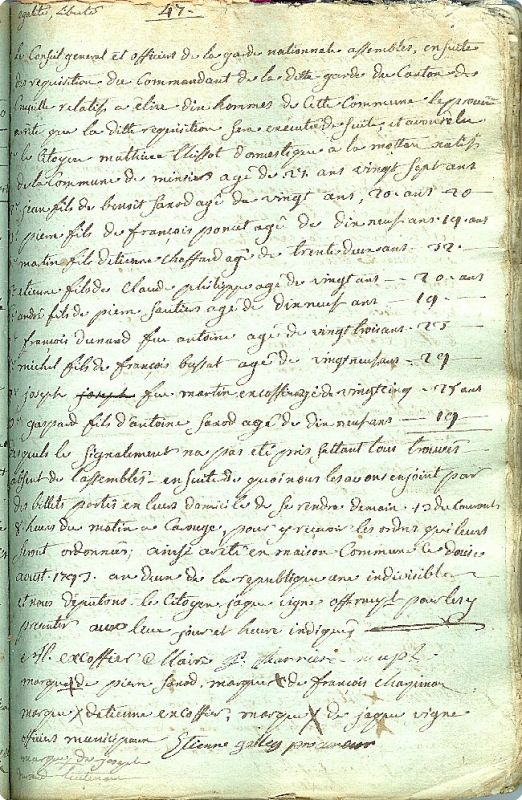 egalité, Liberté 47.
le Conseil general et officiers de la garde nationnale assembles, en suite
de requisition du Commandant de la ditte garde du Canton de
relatif a elire dix hommes de Cette Commune
arrete que la ditte requisition sera executée de suite, et avons elu
le Citoyen mathieu Clissot domestique a la mottaz natif
de la Commune de minsier agé de 27 ans vingt sept ans
jean fils de benoit Sarod agé de vingt ans, 20 ans 20
pierre fils de francois poncet agé de dix neuf ans 19 ans
martin fils d'etienne Chaffard agé de trente deux ans 32 -
etienne fils de Claude philippe agé de vingt ans — 20 ans
andré fils de pierre Sautier agé de dix neuf ans — 19 -
francois dunand feu antoine agé de vingt trois ans - 23
michel fils de francois bussat agé de vingt neuf ans - 29
joseph joseph feu martin excoffier agé de vingt cinq - 25 ans
gaspard fils d'antoine Sarod agé de dix neuf ans — 19 -
desquels le signalement na pas eté pris settant tous trouvés
absent de l'assemblés - en suite de quoi nous les avons enjoint par
des billets portés en leurs domicile de se rendre demain 13 du Courant
8 heures du matin a Carouge, pour y recevoir les ordres qui leurs
seront ordonnés; ainsi arreté en maison Commune le douze
aoust 1793. an deux de la republique une indivisible
et nous deputons le Citoyen jaque vigne off. pour les y
presenter aux leur jour et heure indiqués
excoffier Maire
marque de pierre Sarod, marque X de francois Chapuisa
marque X detienne excoffier, marque X de jaque vigne
officiers municipaux Etienne gallay procureur
marque de joseph